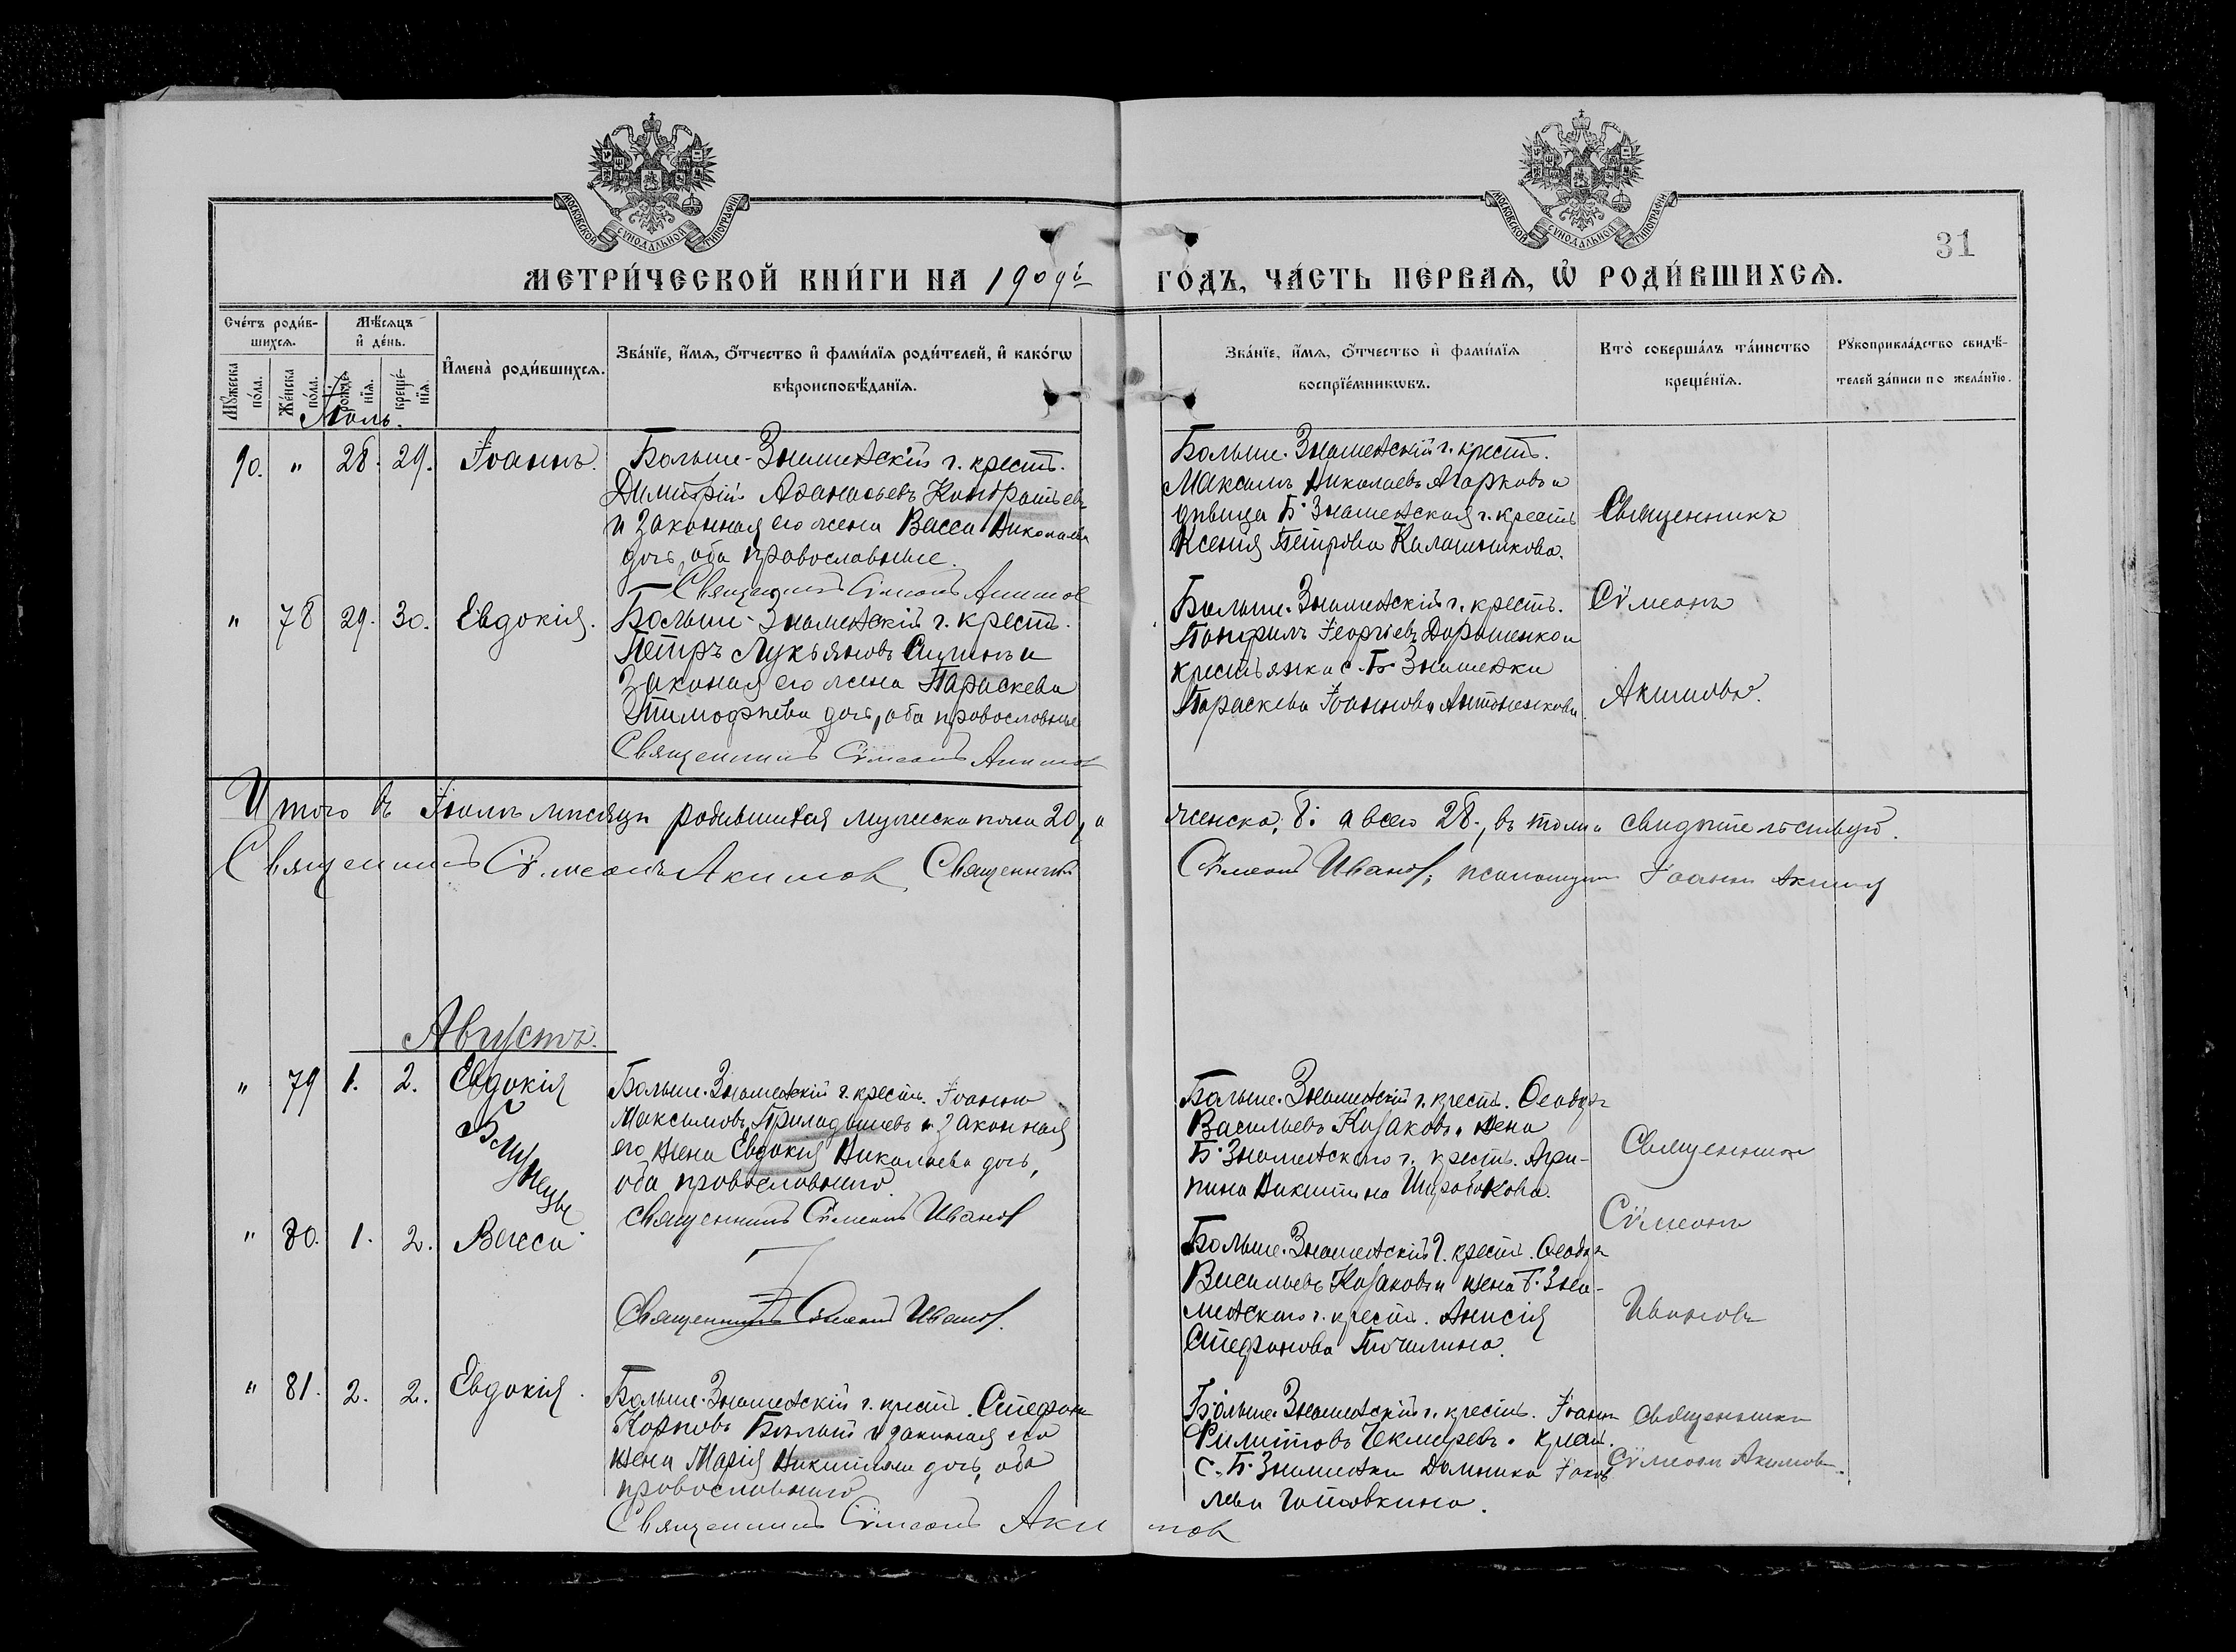 МОСКОВСКОЙ СѴНОДАЛЬНОЙ ТИПОГРАФІИ
МОСКОВСКОЙ СѴНОДАЛЬНОЙ ТИПОГРАФІИ
31
МЕТРИ́ЧЕСКОЙ КНИ́ГИ НА 1909й ГО́ДЪ, ЧА́СТЬ ПЕ́РВАѦ, Ѡ҆ РОДИ́ВШИХСѦ.
Сче́тъ роди́в-
шихсѧ.
Мꙋжеска по́ла.
Же́нска по́ла.
Мѣ́сѧцъ
и҆ де́нь.
рожде́нїѧ.
креще́-нїѧ.
И҆мена̀ роди́вшихсѧ.
Зва́нїе, и҆́мѧ, ѻ҆́тчество и҆ фами́лїѧ роди́телей, и҆ како́гѡ
вѣроисповѣ́данїѧ.
Зва́нїе, и҆́мѧ, ѻ҆́тчество и҆ фами́лїѧ
воспрїе́мникѡвъ.
Кто̀ соверша́лъ та́инство
креще́нїѧ.
Рꙋкоприкла́дство свидѣ́-
телей за́писи по жела́нїю.
Іюль.
90. " 28. 29. Іоаннъ.
Больше-Знаменскій г. крест.
Димитрій Аѳанасьевъ Кондратьевъ
и законная его жена Васса Николаева
дочь, оба православные.
Священникъ Сѵмеонъ Акимов
Больше-Знаменскій г. крест.
Максимъ Николаевъ Агарковъ и
дѣвица Б. Знаменская г. крест.
Ксенія Петрова Калашникова.
Священникъ
" 78 29. 30. Евдокія.
Больше-Знаменскій г. крест.
Петръ Лукьяновъ и
Законная его жена Параскева
Тимофѣева дочь, оба православные
Священникъ Сѵмеонъ Акимов
Больше-Знаменскій г. крест.
Панфилъ Георгіевъ Дорошенко и
крестьянка с. Б. Знаменки
Параскева Іоаннова Антоненкова.
Сѵмеонъ
Акимовъ.
Итого въ Іюлѣ мѣсяцѣ родившихся мужеска пола 20, а женска, 8: а всего 28., въ томъ и свидѣтельствуют.
Священникъ Сѵмеонъ Акимов, Священникъ Сѵмеонъ Иванов, псаломщик Іоаннъ
Августъ.
" 79 1. 2. Евдокія
Близнецы
Больше-Знаменскій г. крест. Іоаннъ
Максимовъ и законная
его жена Евдокія Николаева дочь,
оба православнаго
Священникъ Сѵмеонъ Иванов
Больше-Знаменскій г. крест. Ѳеодоръ
Васильевъ Казаковъ и жена
Б. Знаменскаго г. крест. Агри-
пина Никитина Широбокова.
Священникъ
Сѵмеонъ
Ивановъ
" 80. 1. 2. Васса
Священникъ Сѵмеонъ Иванов.
Больше-Знаменскій г. крест. Ѳеодоръ
Васильевъ Казаковъ и жена Б. Зна-
менскаго г. крест. Анисія
Стефанова Точилина.
" 81. 2. 2. Евдокія.
Больше-Знаменскій г. крест. Стефанъ
Карповъ и законная его
жена Марія Никитина дочь, оба
православнаго
Священникъ Сѵмеонъ Акимов
Больше-Знаменскій г. крест. Іоаннъ
Филиповъ Чекмаревъ и крест.
с. Б. Знаменки Домника Іаков-
лева Готовкина.
Священникъ
Сѵмеонъ Акимовъ.